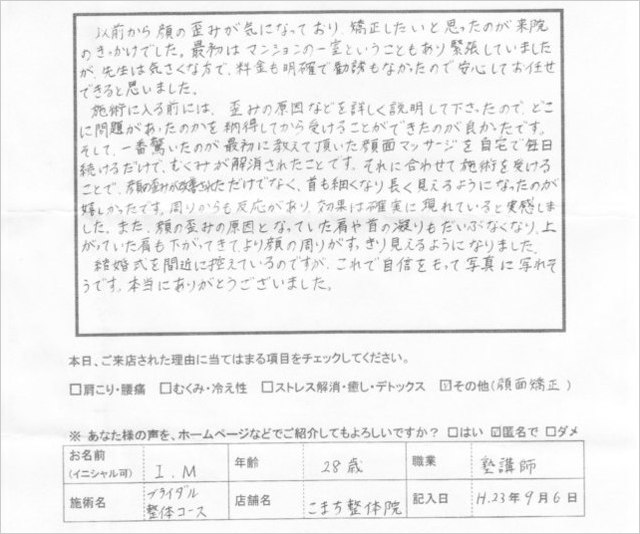 以前から顔の歪みが気になっており矯正したいと思ったのが来院
のきっかけでした。最初はマンションの一室ということもあり緊張していました
が、先生は気さくな方で、料金も明確で勧誘もなかったので安心してお任せ
できると思いました。
施術に入る前には、歪みの原因などを詳しく説明して下さったので、どこ
に問題があったのかを納得してから受けることができたのが良かったです。
そして、一番驚いたのが最初に教えて頂いた顔面マッサージを自宅で毎日
続けるだけで、むくみが解消されたことです。それに合わせて施術を受ける
ことで、顔の歪みが改善されただけでなく、首も細くなり長く見えるようになったのが
嬉しかったです。周りからも反応があり、効果は確実に現れていると実感しま
した。また、顔の歪みの原因となっていた肩や首の凝りもだいぶなくなり、上
がっていた肩も下がってきてより顔の周りがすっきり見えるようになりました。
結婚式を間近に控えているのですが、これで自信をもって写真に写れそ
うです。本当にありがとうございました。
本日、ご来店された理由に当てはまる項目をチェックしてください。
□肩こり・腰痛 □むくみ・冷え性 □ストレス解消・癒し・デトックス ☑その他(顔面矯正)
※ あなた様の声を、ホームページなどでご紹介してもよろしいですか? □はい ☑匿名で □ダメ
お名前 (イニシャル可) I.M 年齢 28歳 職業 塾講師
施術名 ブライダル整体コース 店舗名 こまち整体院 記入日 H.23年9月6日